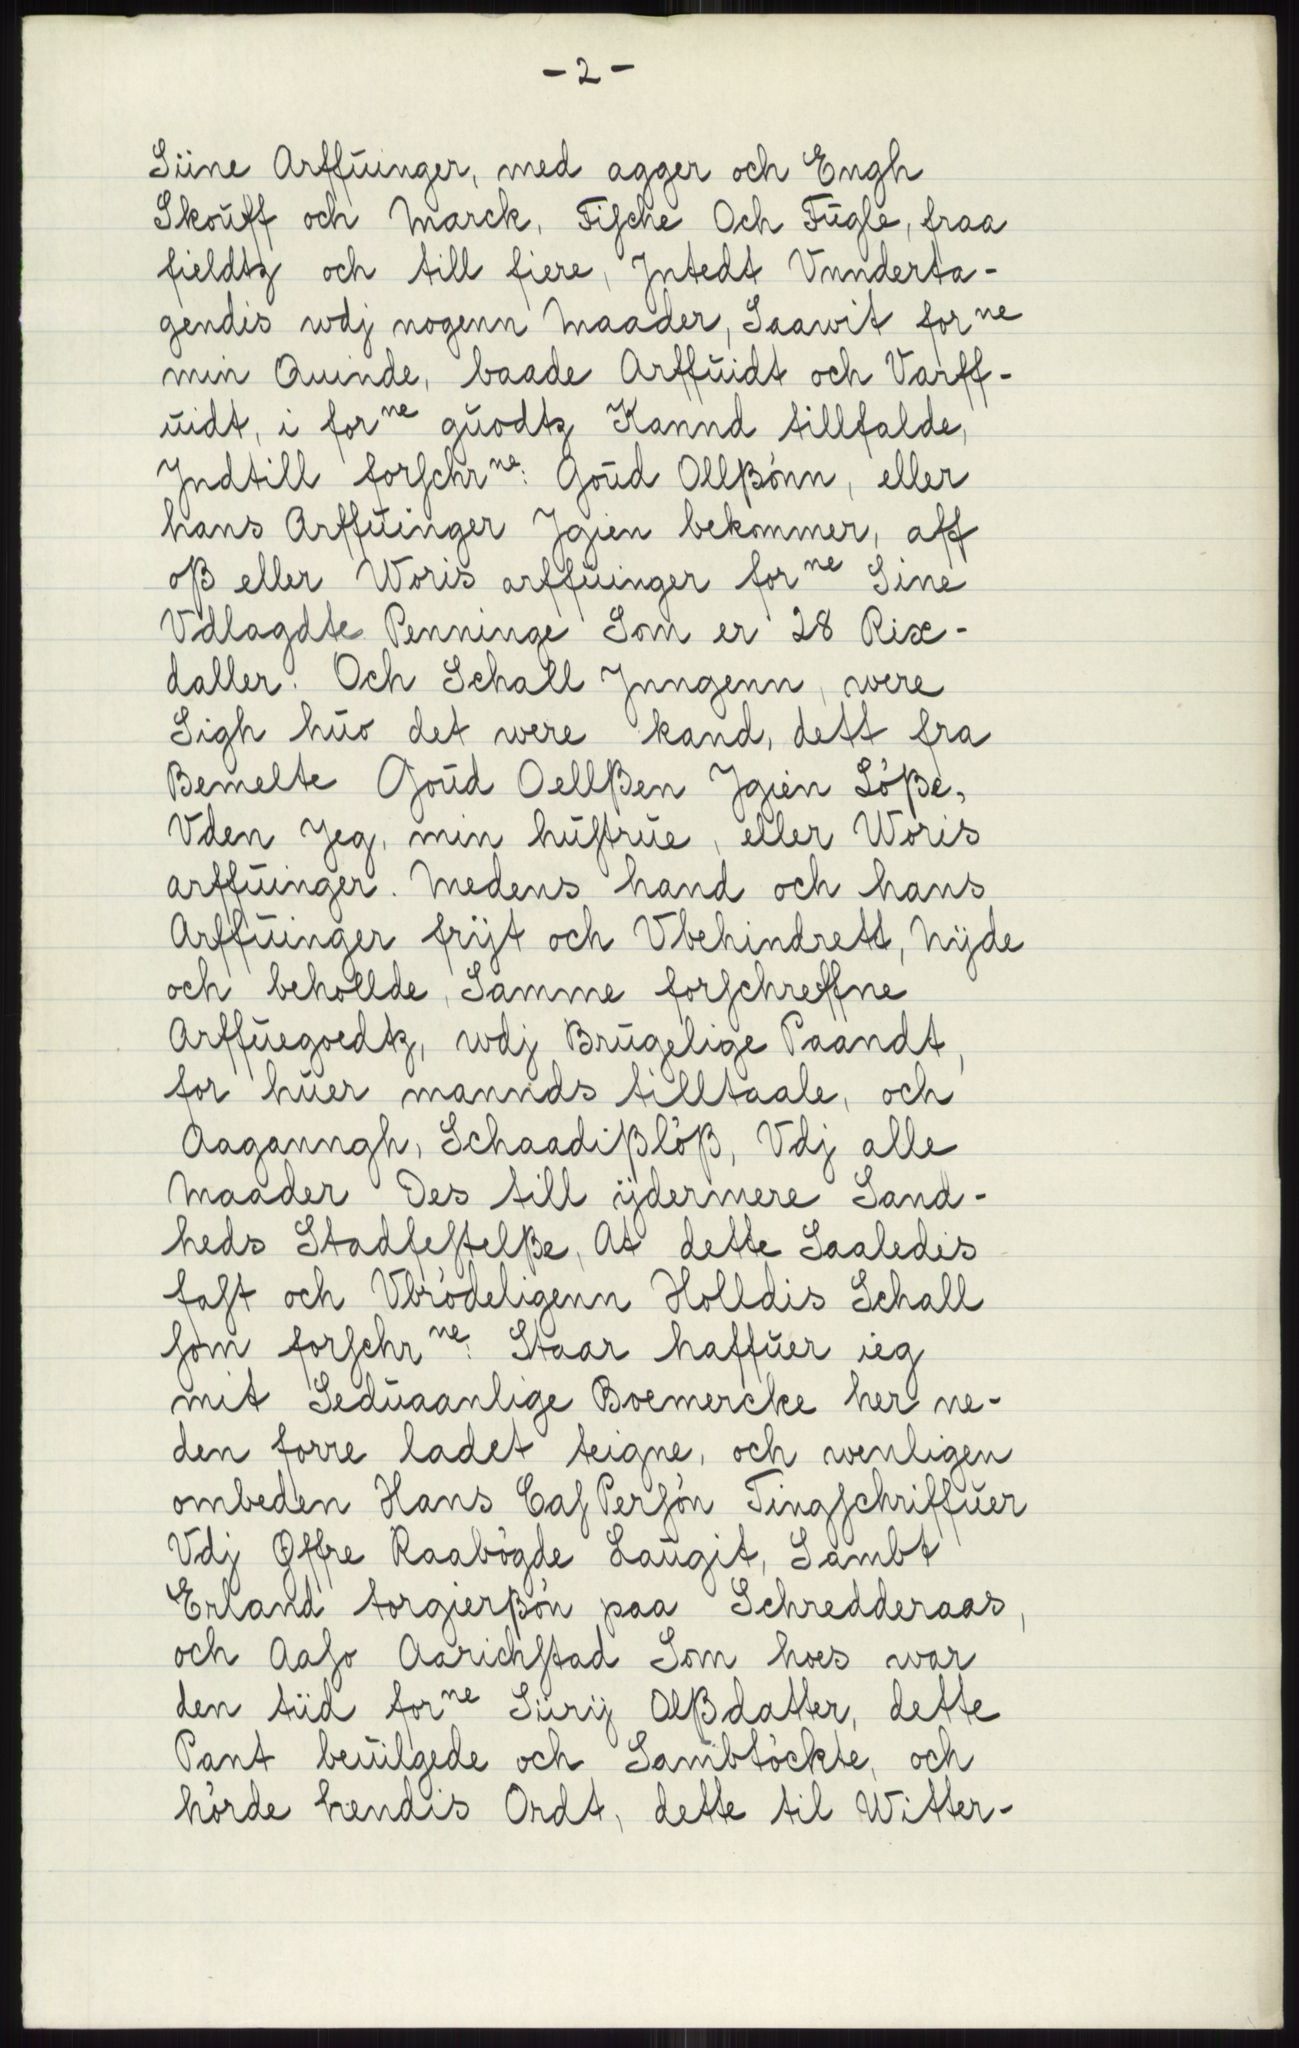 - 2 -
Siine Arffŭinger, med agger och Engh
Skoŭff och Marck, Fische Och Fŭgle, fraa
fieldtz och till fiere, Jntedt Vnnderta-
gendis wdj nogenn Maader, Saawit forne
min Quinde, baade Arffŭidt och Varff-
ŭidt, i forne gŭodtz Kannd tillfalde,
Jndtill forschrne: Goŭd Ollßönn, eller
hans Arffŭinger Jgien bekommer, aff
oß eller Woris arffŭinger forne Sine
Vdlagdte Penninge Som er 28 Rix-
daller. Och Schall Jnngenn, were
Sigh hŭo det were kand, dett fra
Bemelte Goŭd Oellßen Jgien Lößе,
Vden Jeg, min hŭstrŭe, eller Woris
arffŭinger. Medens hand och hans
Arffŭinger frÿt och Vbehindrett, Nÿde
och behollde, Samme forschreffne
Arffŭegoedtz, wdj Brŭgelige Paandt,
for hŭer mannds tilltaale, och
Aaganngh, Schaadißlöß, Vdj alle
Maader Des till ÿdermere Sand-
heds Stadfestelße, At dette Saaledis
fast och Vbrödeligenn Holldis Schall
som forschrne: Staar haffŭer ieg
mit Sedŭaanlige Boemercke her ne-
den forre ladet teigne, och wenligen
ombeden Hans CasPersön Tingschriffŭer
Vdj Øffre Raabögde Laŭgit, Sambt
Erland torgierßön paa Schredderaas,
och Aaso Aarichstad Som hoes war
den tiid forne Siirÿ Olßdatter, dette
Pant beŭilgede och Sambtöckte, och
hörde hendis Ordt, dette til Witter-